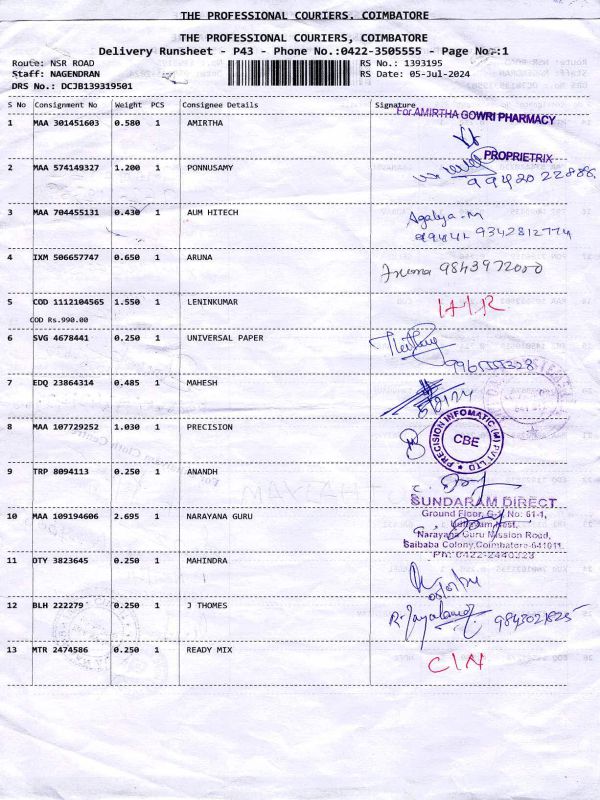 THE PROFESSIONAL COURIERS. COIMBATORE
THE PROFESSIONAL COURIERS, COIMBATORE
Delivery Runsheet - P43 - Phone No.:0422-3505555 - Page No.:1
Route: NSR ROAD RS No.: 1393195
Staff: NAGENDRAN RS Date: 05-Jul-2024
DRS No.: DCJB139319501
S No Consignment No Weight PCS Consignee Details Signature
For AMIRTHA GOWRI PHARMACY
1 MAA 301451603 0.580 1 AMIRTHA
PROPRIETRIX
2 MAA 574149327 1.200 1 PONNUSAMY
9942022888
3 MAA 704455131 0.430 1 AUM HITECH Agalya.M
9342812774
4 IXM 506657747 0.650 1 ARUNA Aruna 9843972000
5 COD 1112104565 1.550 1 LENINKUMAR
COD Rs.990.00
6 SVG 4678441 0.250 1 UNIVERSAL PAPER
9965555328
7 EDQ 23864314 0.485 1 MAHESH
8 MAA 107729252 1.030 1 PRECISION PRECISION INFOMATIC (M) PVT LTD
CBE
9 TRP 8094113 0.250 1 ANANDH
SUNDARAM DIRECT
10 MAA 109194606 2.695 1 NARAYANA GURU Ground Floor, G-3 No: 61-1,
Narayana Guru Mission Road,
Saibaba Colony,Coimbatore-641011.
Ph: 0422-2440328
11 OTY 3823645 0.250 1 MAHINDRA
05/07/24
12 BLH 222279 0.250 1 J THOMES 9843021825
13 MTR 2474586 0.250 1 READY MIX C/N